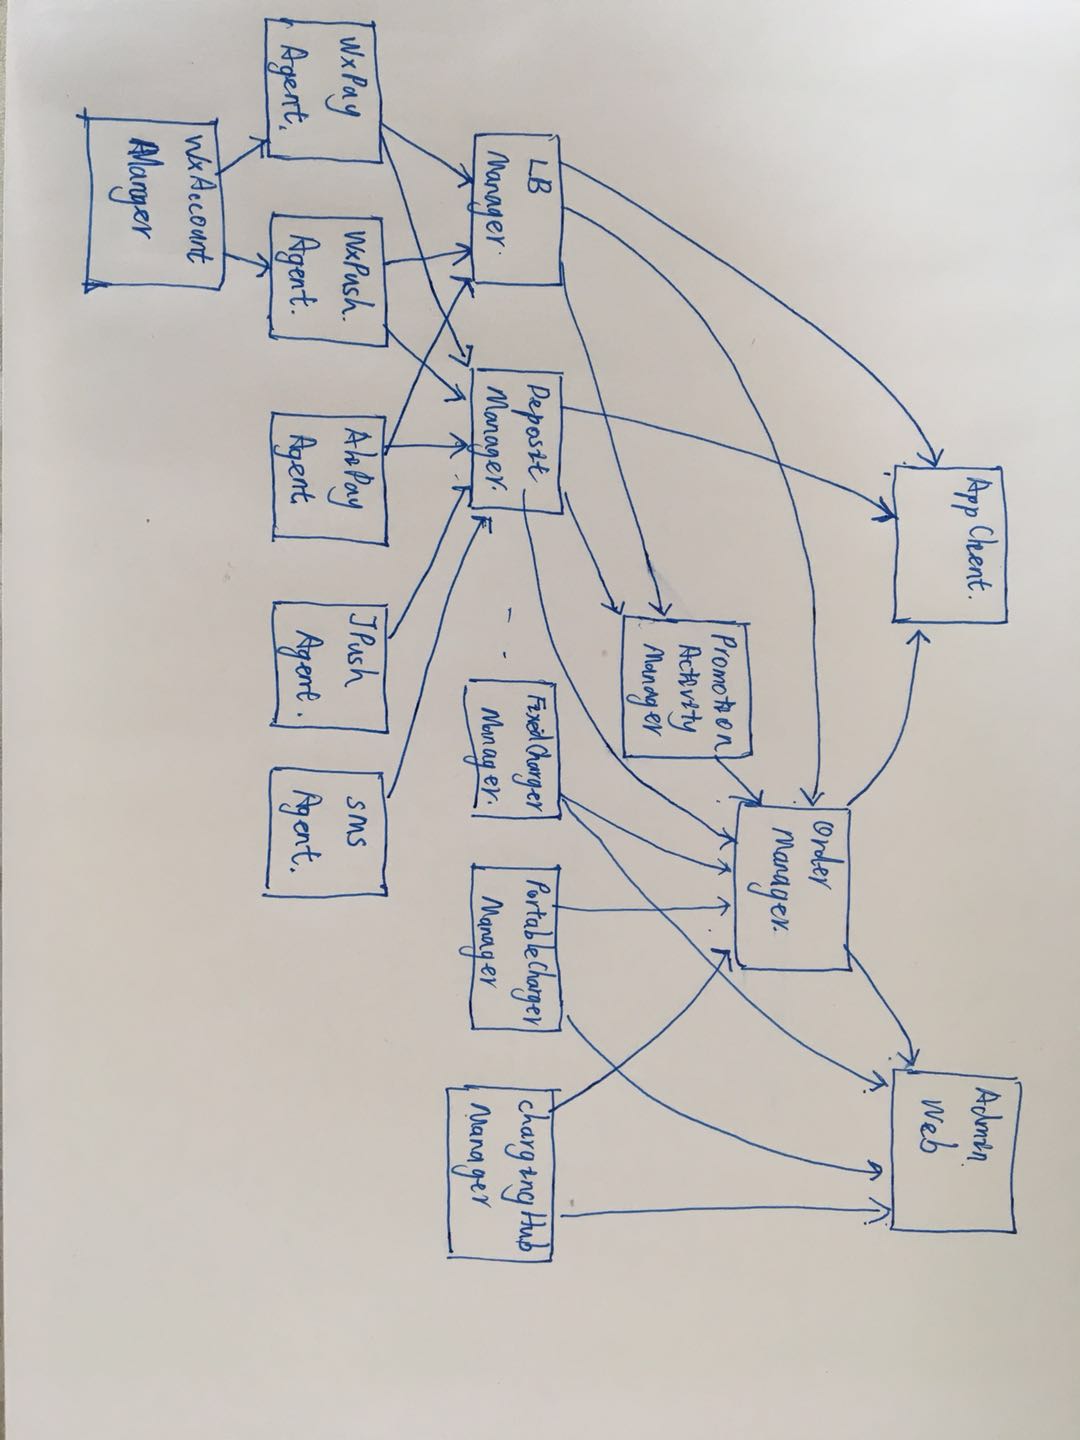 App Client.
Admin
Web
Order
Manager.
Promotion
Activity
Manager
LB
Manager.
Deposit
Manager.
FixedCharger
Manager.
PortableCharger
Manager
chargingHub
Manager
WxPay
Agent.
WxPush.
Agent.
AliPay
Agent
JPush
Agent.
SMS
Agent.
WxAccount
Manager